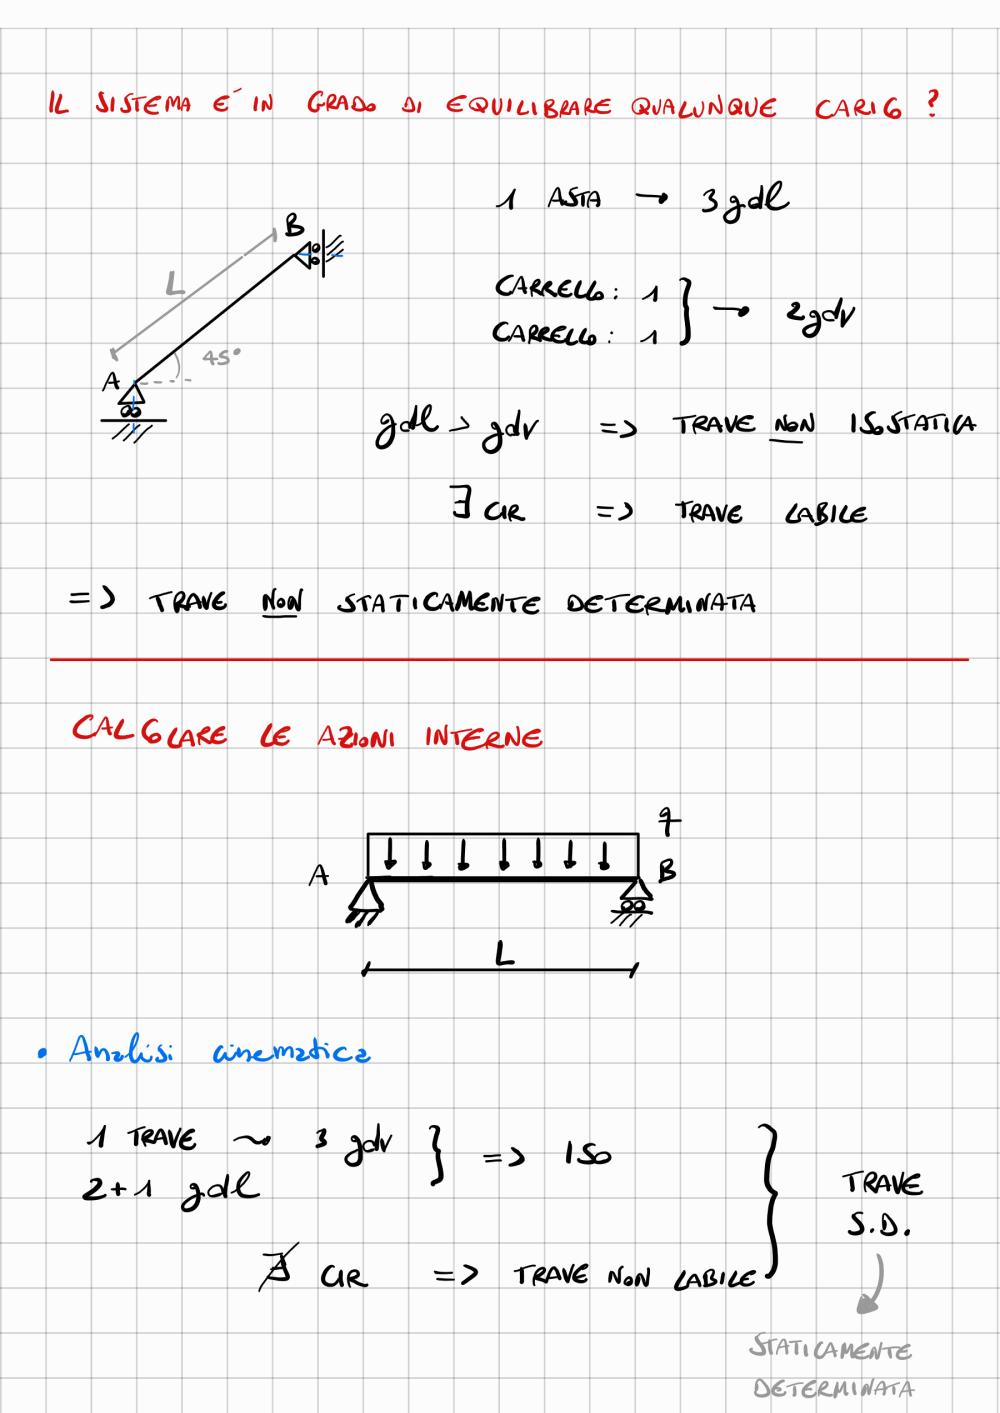 IL SISTEMA E' IN GRADO DI EQUILIBRARE QUALUNQUE CARICO ?
1 ASTA → 3 gdl
B
L
CARRELLO : 1
CARRELLO : 1
} → 2 gdv
45°
A
gdl > gdv => TRAVE NON ISOSTATICA
∃ CIR => TRAVE LABILE
=> TRAVE NON STATICAMENTE DETERMINATA
CALCOLARE LE AZIONI INTERNE
q
A
B
L
• Analisi cinematica
1 TRAVE ⇝ 3 gdv
2+1 gdl
} => ISO
∄ CIR => TRAVE NON LABILE
} TRAVE
S.D.
STATICAMENTE
DETERMINATA